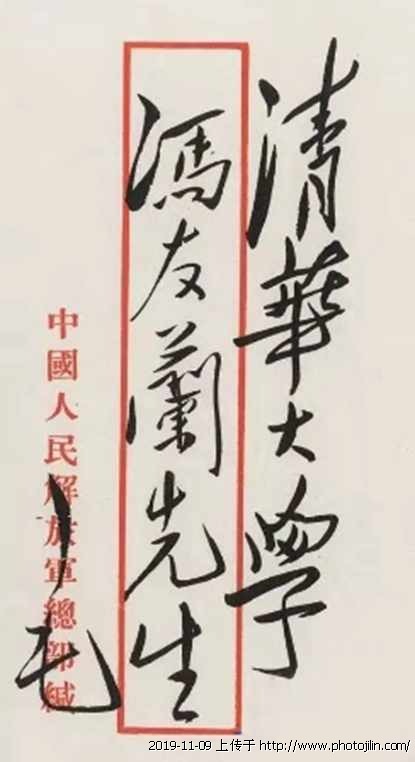 清華大學
馮友蘭先生
中國人民解放軍總部緘
毛
2019-11-09 上传于 http://www.photojilin.com/